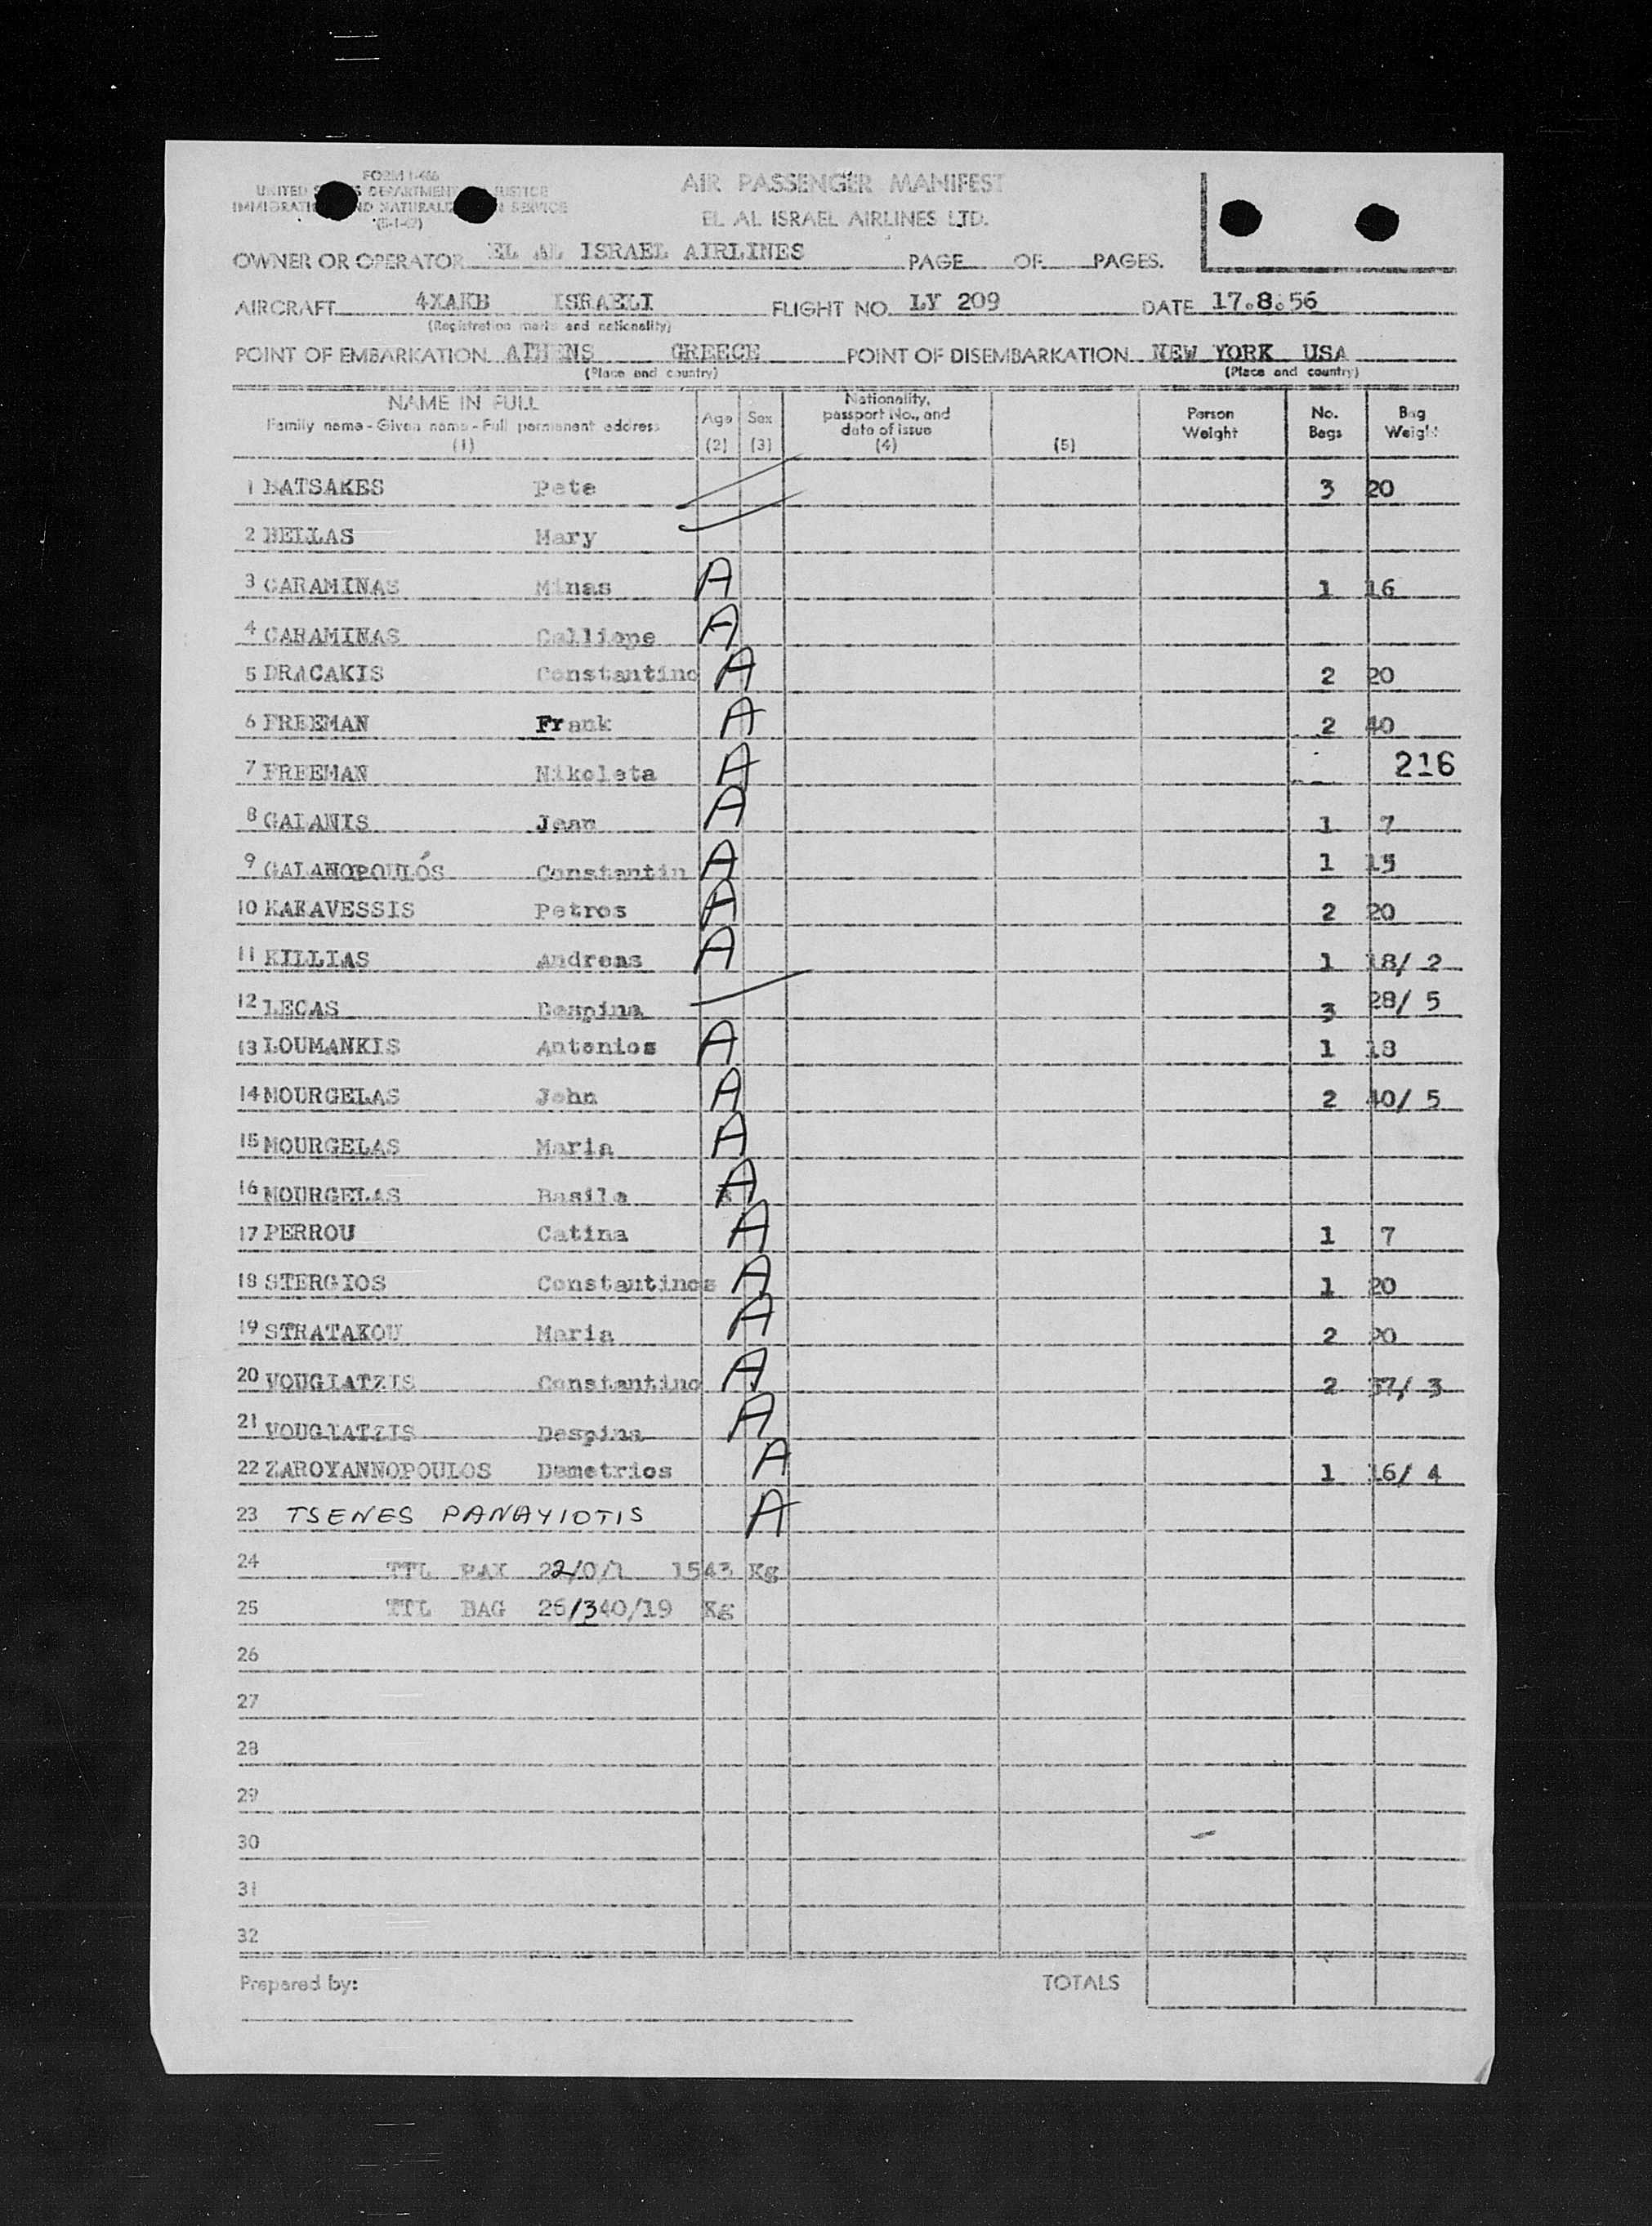 FORM I-466
UNITED S DEPARTMENT JUSTICE
IMMIGRATI ND NATURALIZ N SERVICE
AIR PASSENGER MANIFEST
EL AL ISRAEL AIRLINES LTD.
OWNER OR OPERATOR EL AL ISRAEL AIRLINES PAGE OF PAGES.
AIRCRAFT 4XAKB ISRAELI FLIGHT NO. LY 209 DATE 17.8.56
(Registration marks and nationality)
POINT OF EMBARKATION ATHENS GREECE POINT OF DISEMBARKATION NEW YORK USA
(Place and country) (Place and country)
NAME IN FULL
Family name - Given name - Full permanent address
(1)
Age
(2)
Sex
(3)
Nationality,
passport No., and
date of issue
(4)
(5)
Person
Weight
No.
Bags
Bag
Weight
1 BATSAKES Pete 3 20
2 BELLAS Mary
3 CARAMINAS Minas A 1 16
4 CARAMINAS Calliope A
5 DRACAKIS Constantino A 2 20
6 FREEMAN Frank A 2 40
7 FREEMAN Nikoleta A 216
8 GALANIS Jean A 1 7
9 GALANOPOULOS Constantin A 1 15
10 KARAVESSIS Petros A 2 20
11 KILLIAS Andreas A 1 18/ 2
12 LECAS Despina 3 28/ 5
13 LOUMANKIS Antonios A 1 18
14 MOURGELAS John A 2 40/ 5
15 MOURGELAS Maria A
16 MOURGELAS Basile A
17 PERROU Catina A 1 7
18 STERGIOS Constantinos A 1 20
19 STRATAKOU Maria A 2 20
20 VOUGIATZIS Constantino A 2 37/ 3
21 VOUGIATZIS Despina A
22 ZAROYANNOPOULOS Demetrios A 1 16/ 4
23 TSENES PANAYIOTIS A
24 TTL PAX 22/0/1 1543 Kg
25 TTL BAG 26/340/19 Kg
26
27
28
29
30
31
32
Prepared by: TOTALS